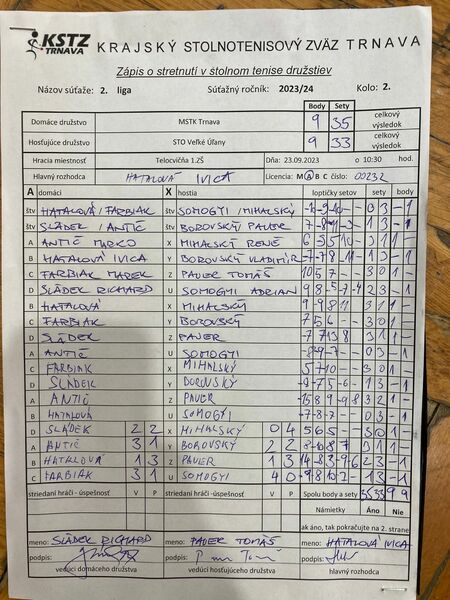 KSTZ TRNAVA KRAJSKÝ STOLNOTENISOVÝ ZVÄZ TRNAVA
Zápis o stretnutí v stolnom tenise družstiev
Názov súťaže: 2. liga Súťažný ročník: 2023/24 Kolo: 2.
Body Sety
Domáce družstvo MSTK Trnava 9 35 celkový výsledok
Hosťujúce družstvo STO Veľké Úľany 9 33 celkový výsledok
Hracia miestnosť Telocvičňa 1.ZŠ Dňa: 23.09.2023 o 10:30 hod.
Hlavný rozhodca HATALOVÁ IVICA Licencia: M A B C číslo: 00232
A domáci X hostia loptičky setov sety body
štv HATALOVÁ/FARBIAK štv SOMOGYI/MIHALSKÝ 0 3 - 1
štv SLÁDEK / ANTIČ štv BOROVSKÝ PAVER 1 3 - 1
A ANTIČ MIRKO X MIHALSKÝ RENÉ 3 1 1 -
B HATALOVÁ IVICA Y BOROVSKÝ VLADIMÍR 1 3 - 1
C FARBIAK MAREK Z PAVER TOMÁŠ 10 5 7 - - 3 0 1 -
D SLÁDEK RICHARD U SOMOGYI ADRIAN 2 3 - 1
B HATALOVÁ X MIHALSKÝ 3 1 1 -
C FARBIAK Y BOROVSKÝ 7 5 6 - - 3 0 1 -
D SLÁDEK Z PAVER 3 1 1 -
A ANTIČ U SOMOGYI 0 3 - 1
C FARBIAK X MIHALSKÝ 5 7 10 - - 3 0 1 -
D SLÁDEK Y BOROVSKÝ 1 3 - 1
A ANTIČ Z PAVER 3 2 1 -
B HATALOVÁ U SOMOGYI -7 -8 -7 - - 0 3 - 1
D SLÁDEK 2 2 X MIHALSKÝ 0 4 5 6 5 - - 3 0 1 -
A ANTIČ 3 1 Y BOROVSKÝ 2 2 3 1 1 -
B HATALOVÁ 1 3 Z PAVER 1 3 2 3 - 1
C FARBIAK 3 1 U SOMOGYI 4 0 1 3 - 1
striedaní hráči - úspešnosť V P striedaní hráči - úspešnosť V P Spolu body a sety 35 33 9 9
Námietky Áno Nie
ak áno, tak pokračujte na 2. strane
meno: SLÁDEK RICHARD meno: PAVER TOMÁŠ meno: HATALOVÁ IVICA
podpis: podpis: podpis:
vedúci domáceho družstva vedúci hosťujúceho družstva hlavný rozhodca